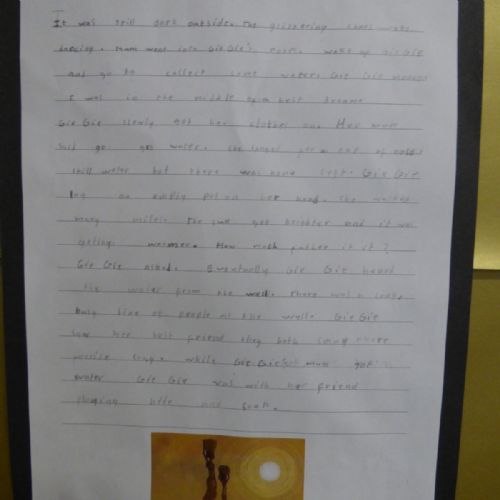 It was still dark outside. The glittering stars were
dancing. Mum went into Gie Gie's room. wake up Gie Gie
and go to collect some water. Gie Gie
I was in the middle of a best dream
Gie Gie slowly got her clothes on. Her mum
said go get water. She longed for a cup of
still water but there was none left. Gie Gie
put an empty pot on her head. She walked
many miles. The sun got brighter and it was
getting warmer. How much further is it?
Gie Gie asked. Eventually Gie Gie heard
the water from the well. There was a long,
busy line of people at the well. Gie Gie
saw her best friend they both
songs. while Gie Gie's mum got
water Gie Gie was with her friend
playing and